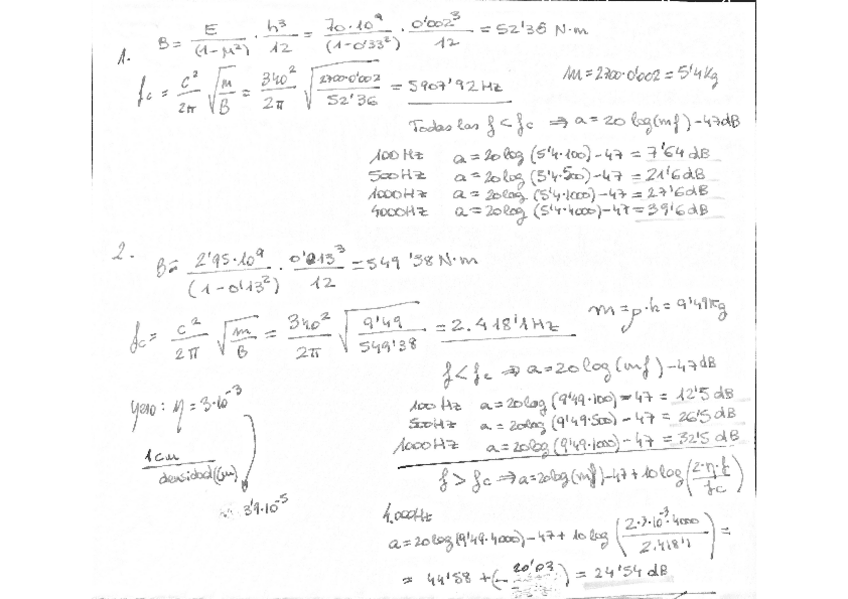 1. B = E/(1-μ²) · h³/12 = 70·10⁹/(1-0'33²) · 0'002³/12 = 52'36 N·m
fc = c²/2π √(m/B) = 340²/2π √(2700·0'002/52'36) = 5907'92 Hz
m = 2700·0'002 = 5'4 Kg
Todas las f < fc ⇒ a = 20 log(mf) - 47 dB
100 Hz a = 20 log (5'4·100) - 47 = 7'64 dB
500 Hz a = 20 log (5'4·500) - 47 = 21'6 dB
1000 Hz a = 20 log (5'4·1000) - 47 = 27'6 dB
4000 Hz a = 20 log (5'4·4000) - 47 = 39'6 dB
2. B = 2'95·10⁹/(1-0'13²) · 0'013³/12 = 549'38 N·m
m = ρ·h = 9'49 Kg
fc = c²/2π √(m/B) = 340²/2π √(9'49/549'38) = 2.418'1 Hz
f < fc ⇒ a = 20 log(mf) - 47 dB
yeso: η = 3·10⁻³
100 Hz a = 20 log (9'49·100) - 47 = 12'5 dB
500 Hz a = 20 log (9'49·500) - 47 = 26'5 dB
1000 Hz a = 20 log (9'49·1000) - 47 = 32'5 dB
1 cm
densidad (m)
f > fc ⇒ a = 20 log(mf) - 47 + 10 log (2·η·f/fc)
3'9·10⁻⁵
4.000 Hz
a = 20 log (9'49·4000) - 47 + 10 log (2·3·10⁻³·4000/2.418'1) =
= 44'58 + (-20'03) = 24'54 dB